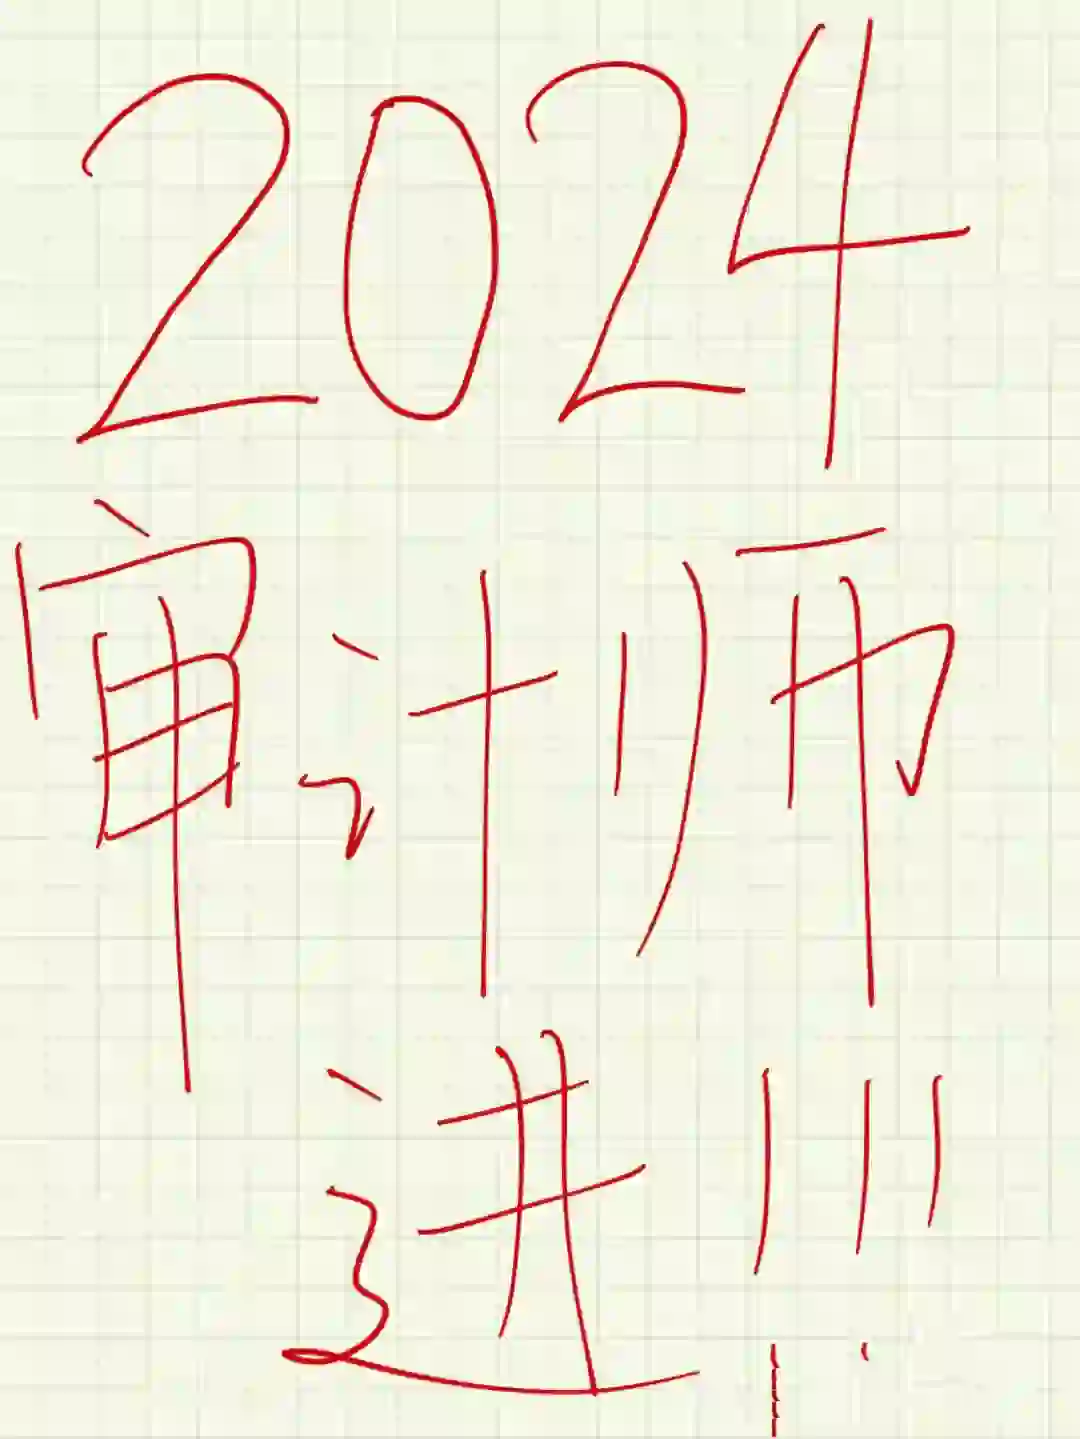 2024
审计师
进!!!